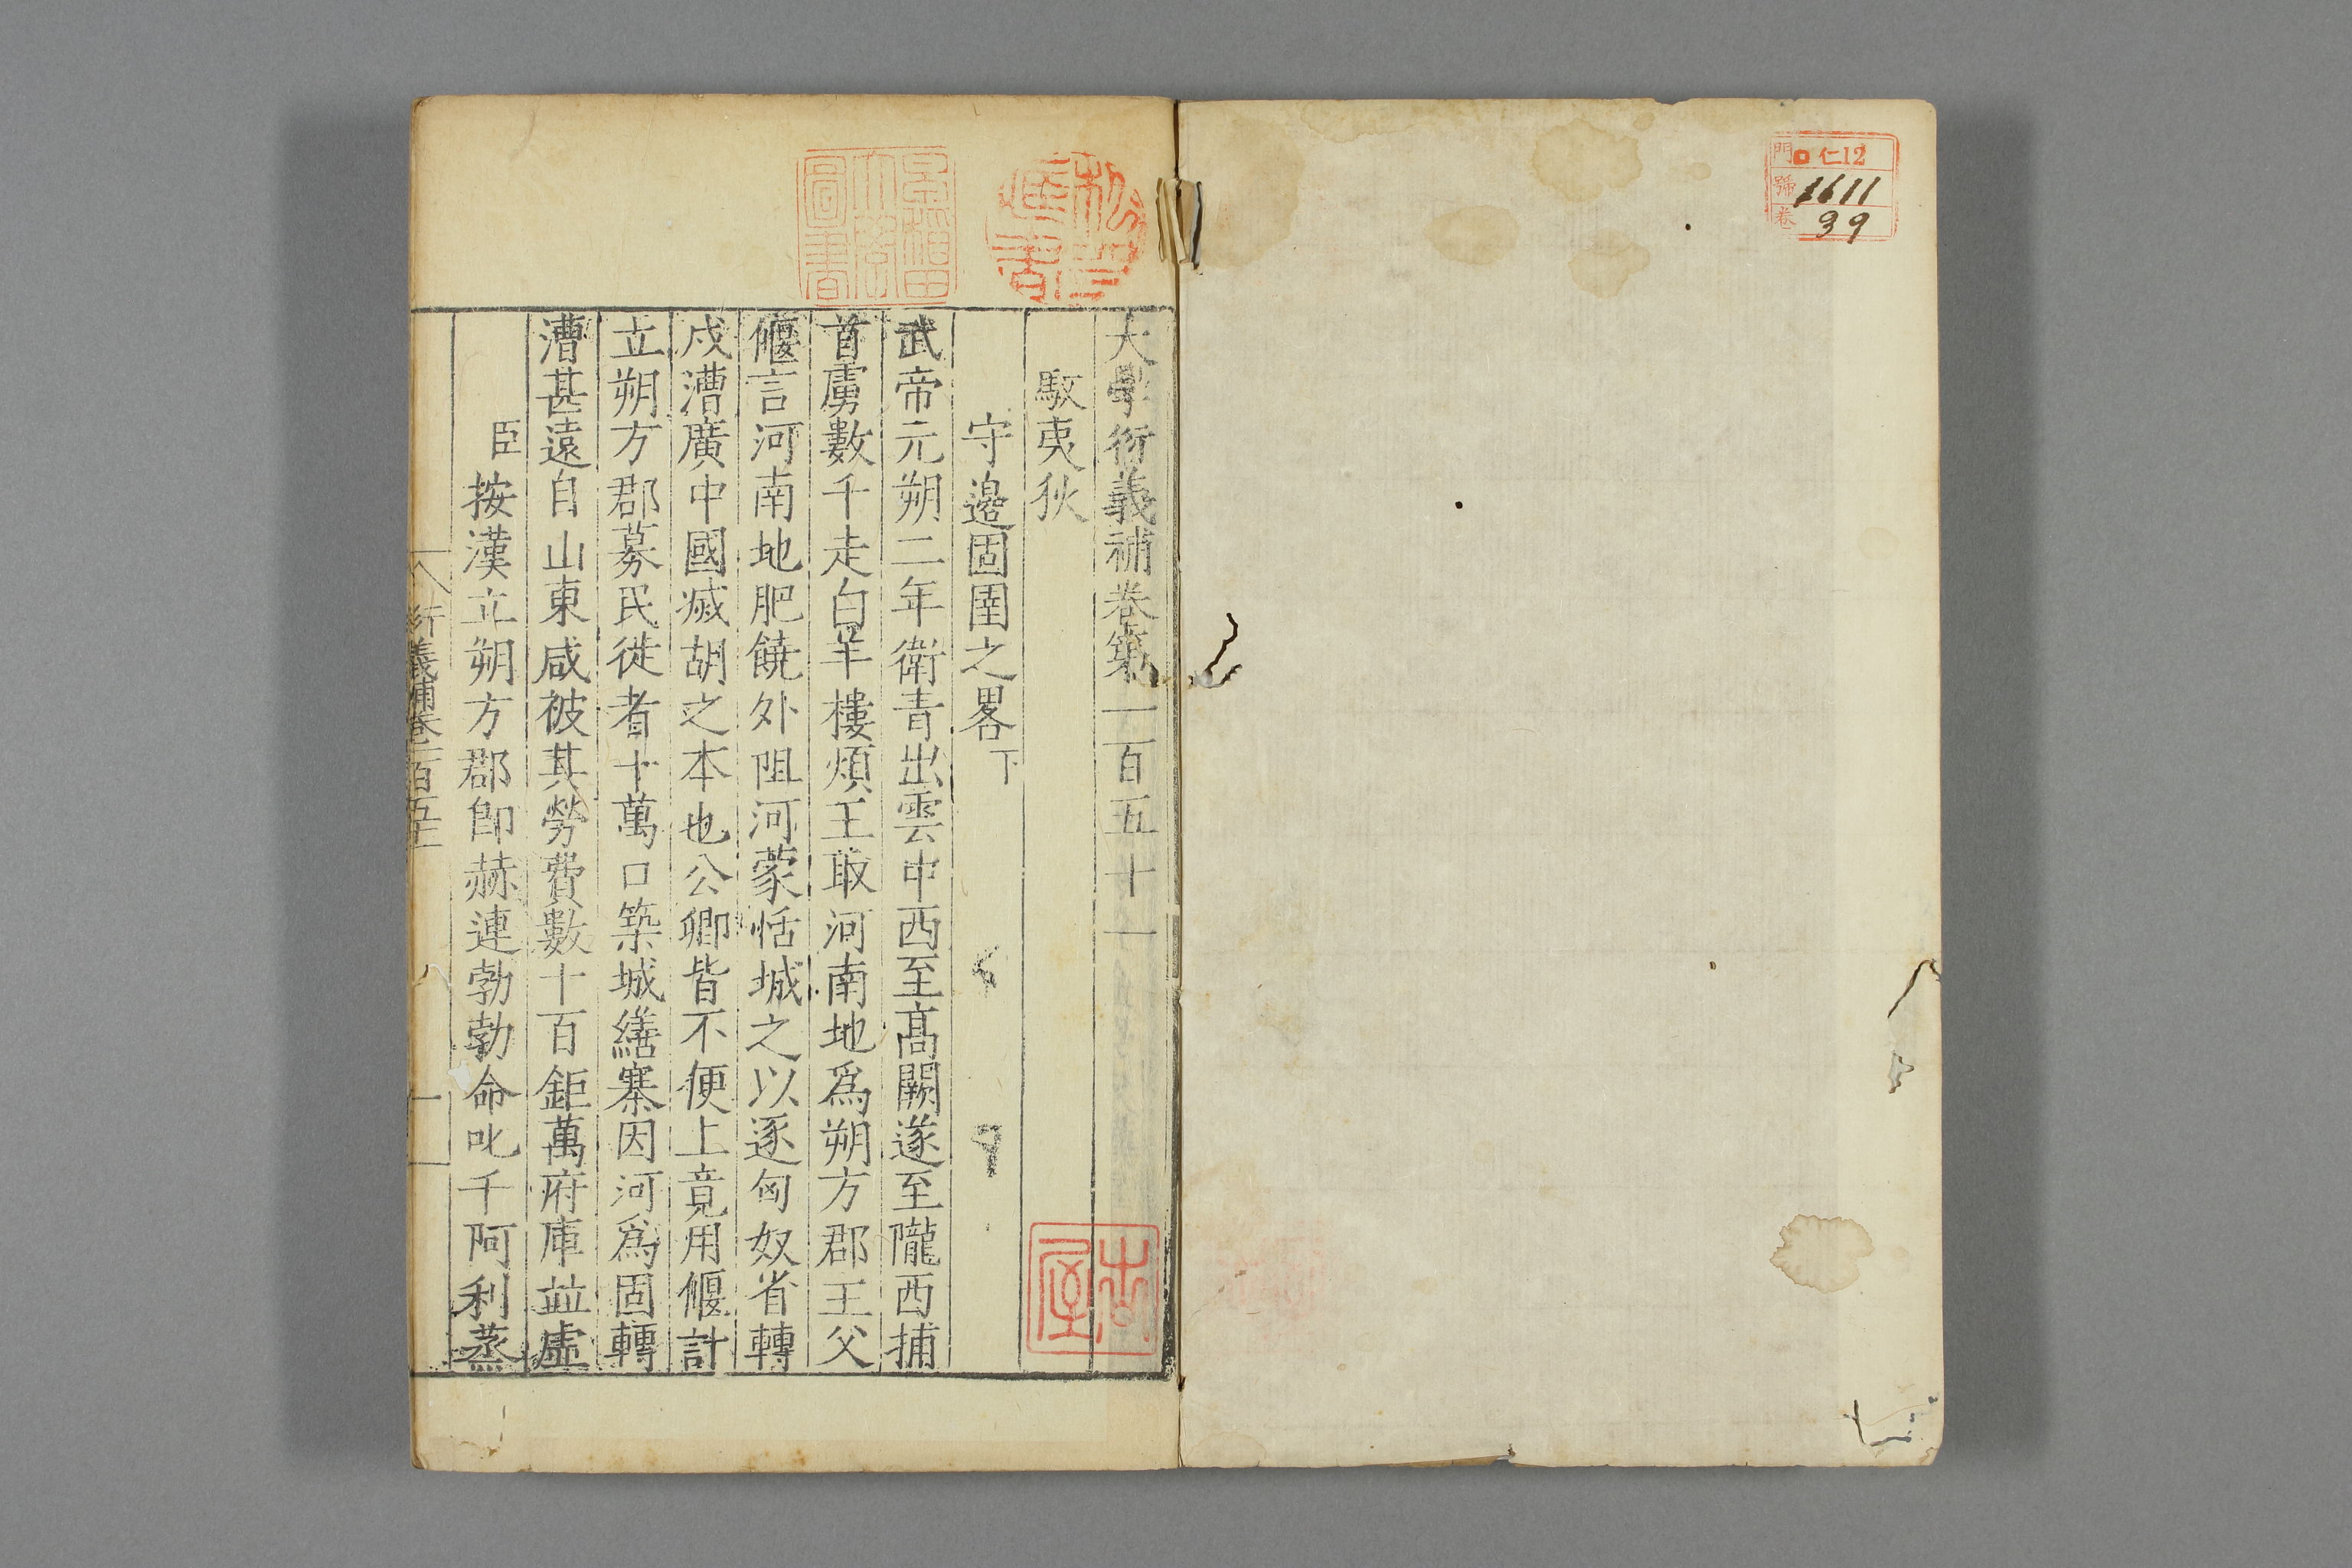 門 ロ 仁12
號 1611
卷 39
大學衍義補卷第一百五十一
馭夷狄
守邊固圉之畧下
武帝元朔二年衛青出雲中西至髙闕遂至隴西捕
首虜數千走白羊樓煩王取河南地爲朔方郡王父
偃言河南地肥饒外阻河蒙恬城之以逐匈奴省轉
戍漕廣中國滅胡之本也公卿皆不便上竟用偃計
立朔方郡募民徙者十萬口築城繕塞因河爲固轉
漕甚遠自山東咸被其勞費數十百鉅萬府庫並虛
臣按漢立朔方郡卽赫連勃勃命叱千阿利蒸
衍義補卷一百五十一
一
早稲田大學圖書